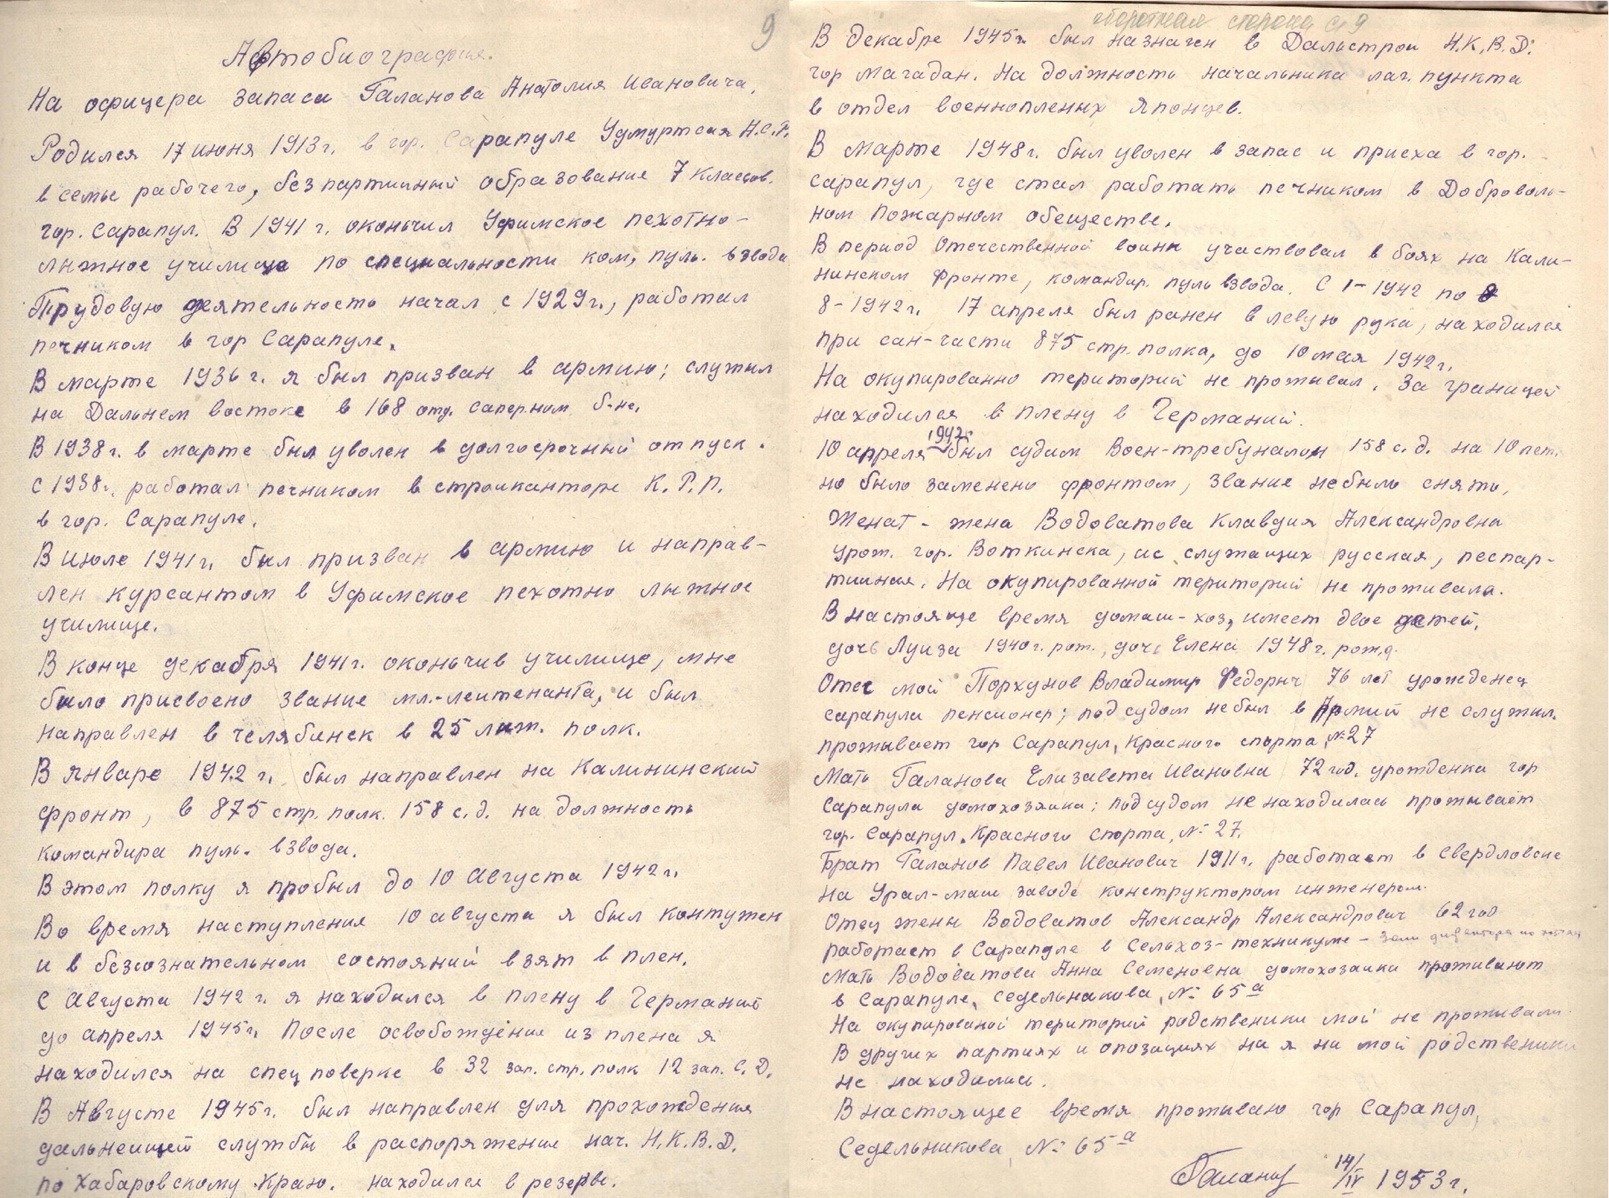 9
Автобиография.
На офицера запаса Галанова Анатолия Ивановича,
Родился 17 июня 1913 г. в гор. Сарапуле Удмуртская А.С.Р.
в семье рабочего, безпартииный образование 7 классов.
гор. Сарапул. В 1941 г. окончил Уфимское пехотно-
лыжное училище по специальности ком, пуль. взвода
Трудовую деятельность начал с 1929 г., работал
печником в гор Сарапуле.
В марте 1936 г. я был призван в армию; служил
на Дальнем востоке в 168 отд. саперном, б-не.
В 1938 г. в марте был уволен в долгосрочный отпуск.
с 1938 г. работал печником в строиканторе К.Р.П.
в гор. Сарапуле.
В июле 1941 г. был призван в армию и направ-
лен курсантом в Уфимское пехотно лыжное
училище.
В конце декабря 1941 г. оконьчив училище, мне
было присвоено звание мл.-леитенанта, и был
направлен в челябинск в 25 лыж. полк.
В январе 1942 г. был направлен на Калининский
фронт, в 875 стр. полк. 158 с.д. на должность
командира пуль. взвода.
В этом полку я пробыл до 10 августа 1942 г.
Во время наступления 10 августа я был контужен
и в безсознательном состояний взят в плен.
С августа 1942 г. я находился в плену в Германий
до апреля 1945 г. После освобождения из плена я
находился на спец поверке в 32 зап. стр. полк 12 зап. С.Д.
В Августе 1945 г. был направлен для прохождения
дальнеишей службы в распоряжение нач. Н.К.В.Д.
по Хабаровскому Краю. находился в резерве.
оборотная сторона с. 9
В декабре 1945 г. был назначен в Дальстрои Н.К.В.Д.
гор магадан. На должность начальника лаг. пункта
в отдел военнопленых Японцев.
В марте 1948 г. был уволен в запас и приеха в гор.
Сарапул, где стал работать печником в Доброволь-
ном Пожарном обеществе.
В период Отечественной воины участвовал в боях на Кали-
нинском фронте, командир. пуль взвода. С 1-1942 по
8-1942 г. 17 апреля был ранен в левую рука, находился
при сан-части 875 стр. полка, до 10 мая 1942 г.
На окупированно територий не проживал. За границей
находился в плену в Германий.
10 апреля 1942 г. был судим Воен-требуналом 158 с.д. на 10 лет.
но было заменено фронтом, звание небыло снято,
Женат - жена Водоватова Клавдия Александровна
урож. гор. Воткинска, ис служащих русская, беспар-
тииная. На окупированной територий не проживала.
В настояще время домаш-хоз, имеет двое детей,
дочь Луиза 1940 г. рож., дочь Елена 1948 г. рожд.
Отец мой Порхунов Владимир Федорыч 76 лет урожденец
сарапула пенсионер; под судом небыл в Армий не служил.
проживает гор Сарапул, Красного спорта № 27
Мать Галанова Елизавета Ивановна 72 год. урожденка гор
Сарапула домохозаика; под судом не находилась проживает
гор. Сарапул, Красного спорта, № 27.
Брат Галанов Павел Иванович 1911 г. работает в Свердловске
на Урал-маш заводе конструктором инженером.
Отец жены Водоватов Александр Александрович 62 год
работает в Сарапуле в Сельхоз-техникуме - зам директора по хозчасти
мать Водоватова Анна Семеновна домохозаика проживают
в Сарапуле, Седельнакова, № 65 а
На окупированой територий родственики мой не проживали.
В других партиях и опозациях на я на мой родственики
не находились.
В настоящее время проживаю гор Сарапул,
Седельникова, № 65 а
Галанов 14/IV 1953 г.